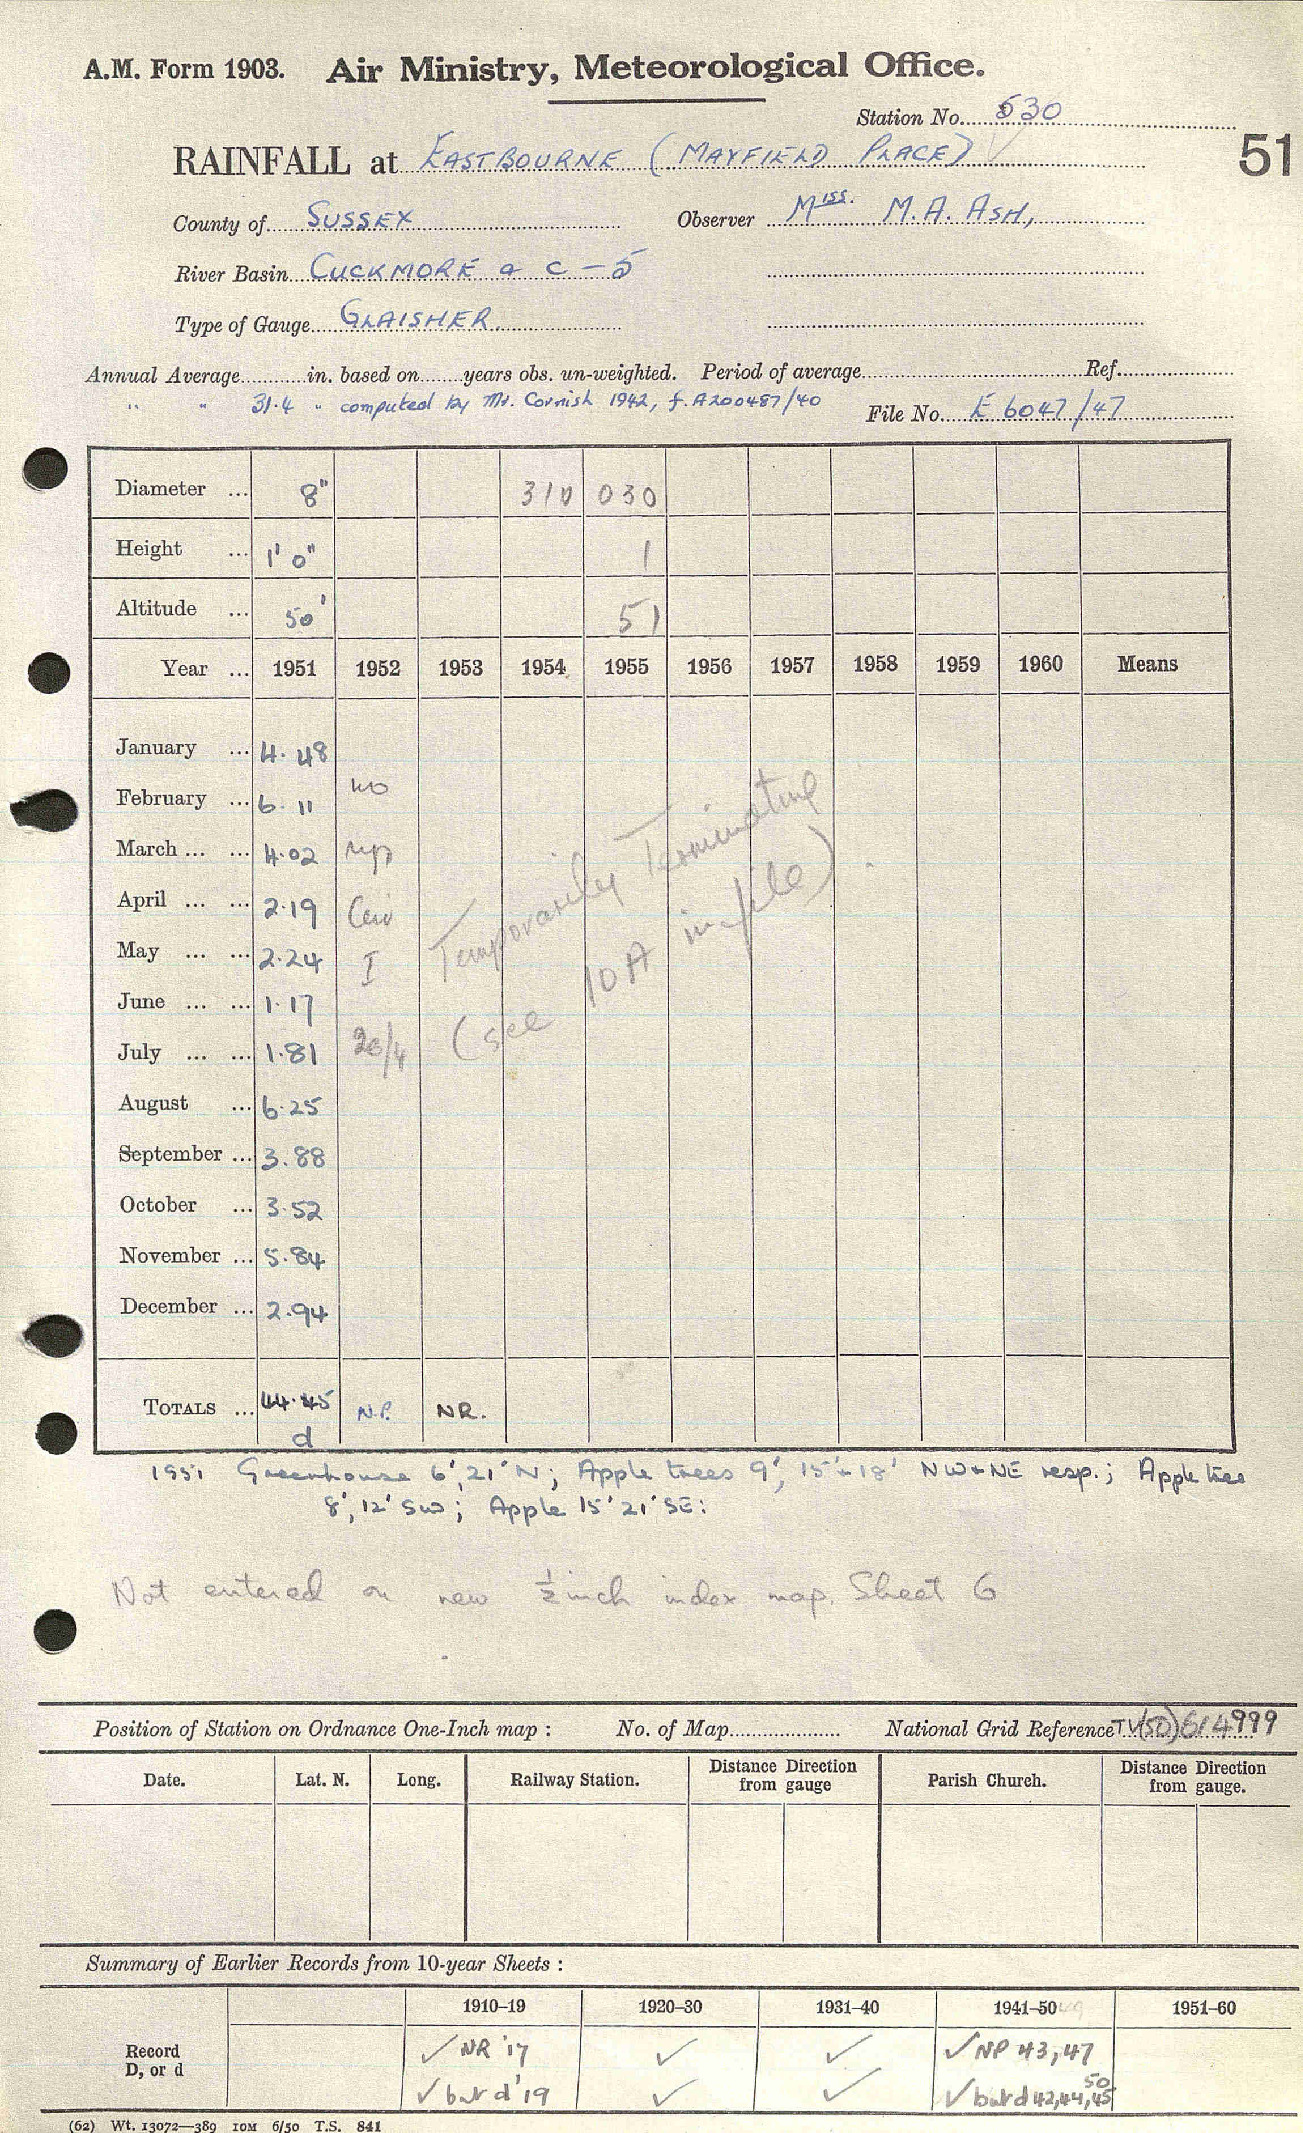 A.M. Form 1903. Air Ministry, Meteorological Office.
Station No. 530
51
RAINFALL at EASTBOURNE (MAYFIELD PLACE)
County of SUSSEX Observer Miss. M.A. ASH,
River Basin CUCKMORE a c - 5
Type of Gauge GLAISHER
Annual Average in. based on years obs. un-weighted. Period of average Ref.
" " 31.4 " computed by Mr. Cornish 1942, f. A200487/40
File No. E 6047/47
Diameter ... 8" 310 030
Height ... 1' 0" 1
Altitude ... 50' 51
Year ... 1951 1952 1953 1954 1955 1956 1957 1958 1959 1960 Means
January ... 4.48
February ... 6.11 no
March ... ... 4.02
April ... ... 2.19
May ... ... 2.24 I
June ... ... 1.17
July ... ... 1.81 /4
August ... 6.25
September ... 3.88
October ... 3.52
November ... 5.84
December ... 2.94
Temporarily Terminating
(see 10A in file).
TOTALS ... 44.45 N.P. NR.
d
1951 Greenhouse 6', 21' N; Apple trees 9', 15' & 18' NW & NE resp.; Apple trees
8', 12' SW; Apple 15' 21' SE:
Not entered on new ½ inch index map. Sheet 6
Position of Station on Ordnance One-Inch map : No. of Map National Grid Reference TV(50)614999
Date. Lat. N. Long. Railway Station. Distance Direction from gauge Parish Church. Distance Direction from gauge.
Summary of Earlier Records from 10-year Sheets :
1910–19 1920–30 1931–40 1941–50 49 1951–60
Record ✓ NR '17 ✓ ✓ ✓ NP 43, 47
D, or d ✓ but d '19 ✓ ✓ ✓ but d 42,44,45 50
(62) Wt. 13072—389 10M 6/50 T.S. 841